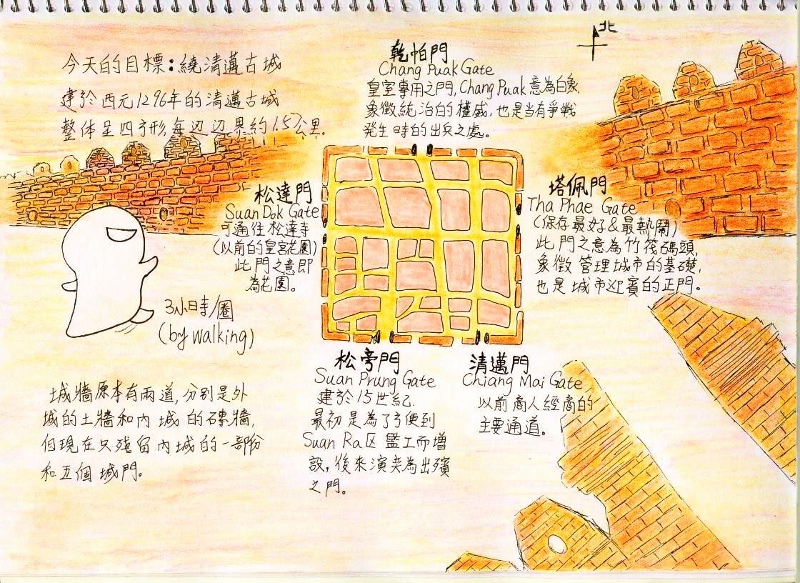 今天的目標：繞清邁古城
建於西元1296年的清邁古城
整体呈四方形,每边边界約1.5公里.
乾怕門
Chang Puak Gate
皇室專用之門,Chang Puak意為白象,
象徵統治的權威,也是当有爭戰
發生時的出兵之處。
北
松達門
Suan Dok Gate
可通往松達寺
(以前的皇宮花園)
此門之意即
為花園。
塔佩門
Tha Phae Gate
(保存最好&最熱鬧)
此門之意為竹筏碼頭,
象徵管理城市的基礎,
也是城市迎賓的正門。
3小時/圈
(by walking)
松旁門
Suan Prung Gate
建於15世紀.
最初是為了方便到
Suan Ra区監工而增
設,後來演变為出殯
之門。
清邁門
Chiang Mai Gate
以前商人經商的
主要通道。
城牆原本有兩道,分別是外
城的土牆和內城的磚牆,
但現在只殘留內城的一部份
和五個城門。